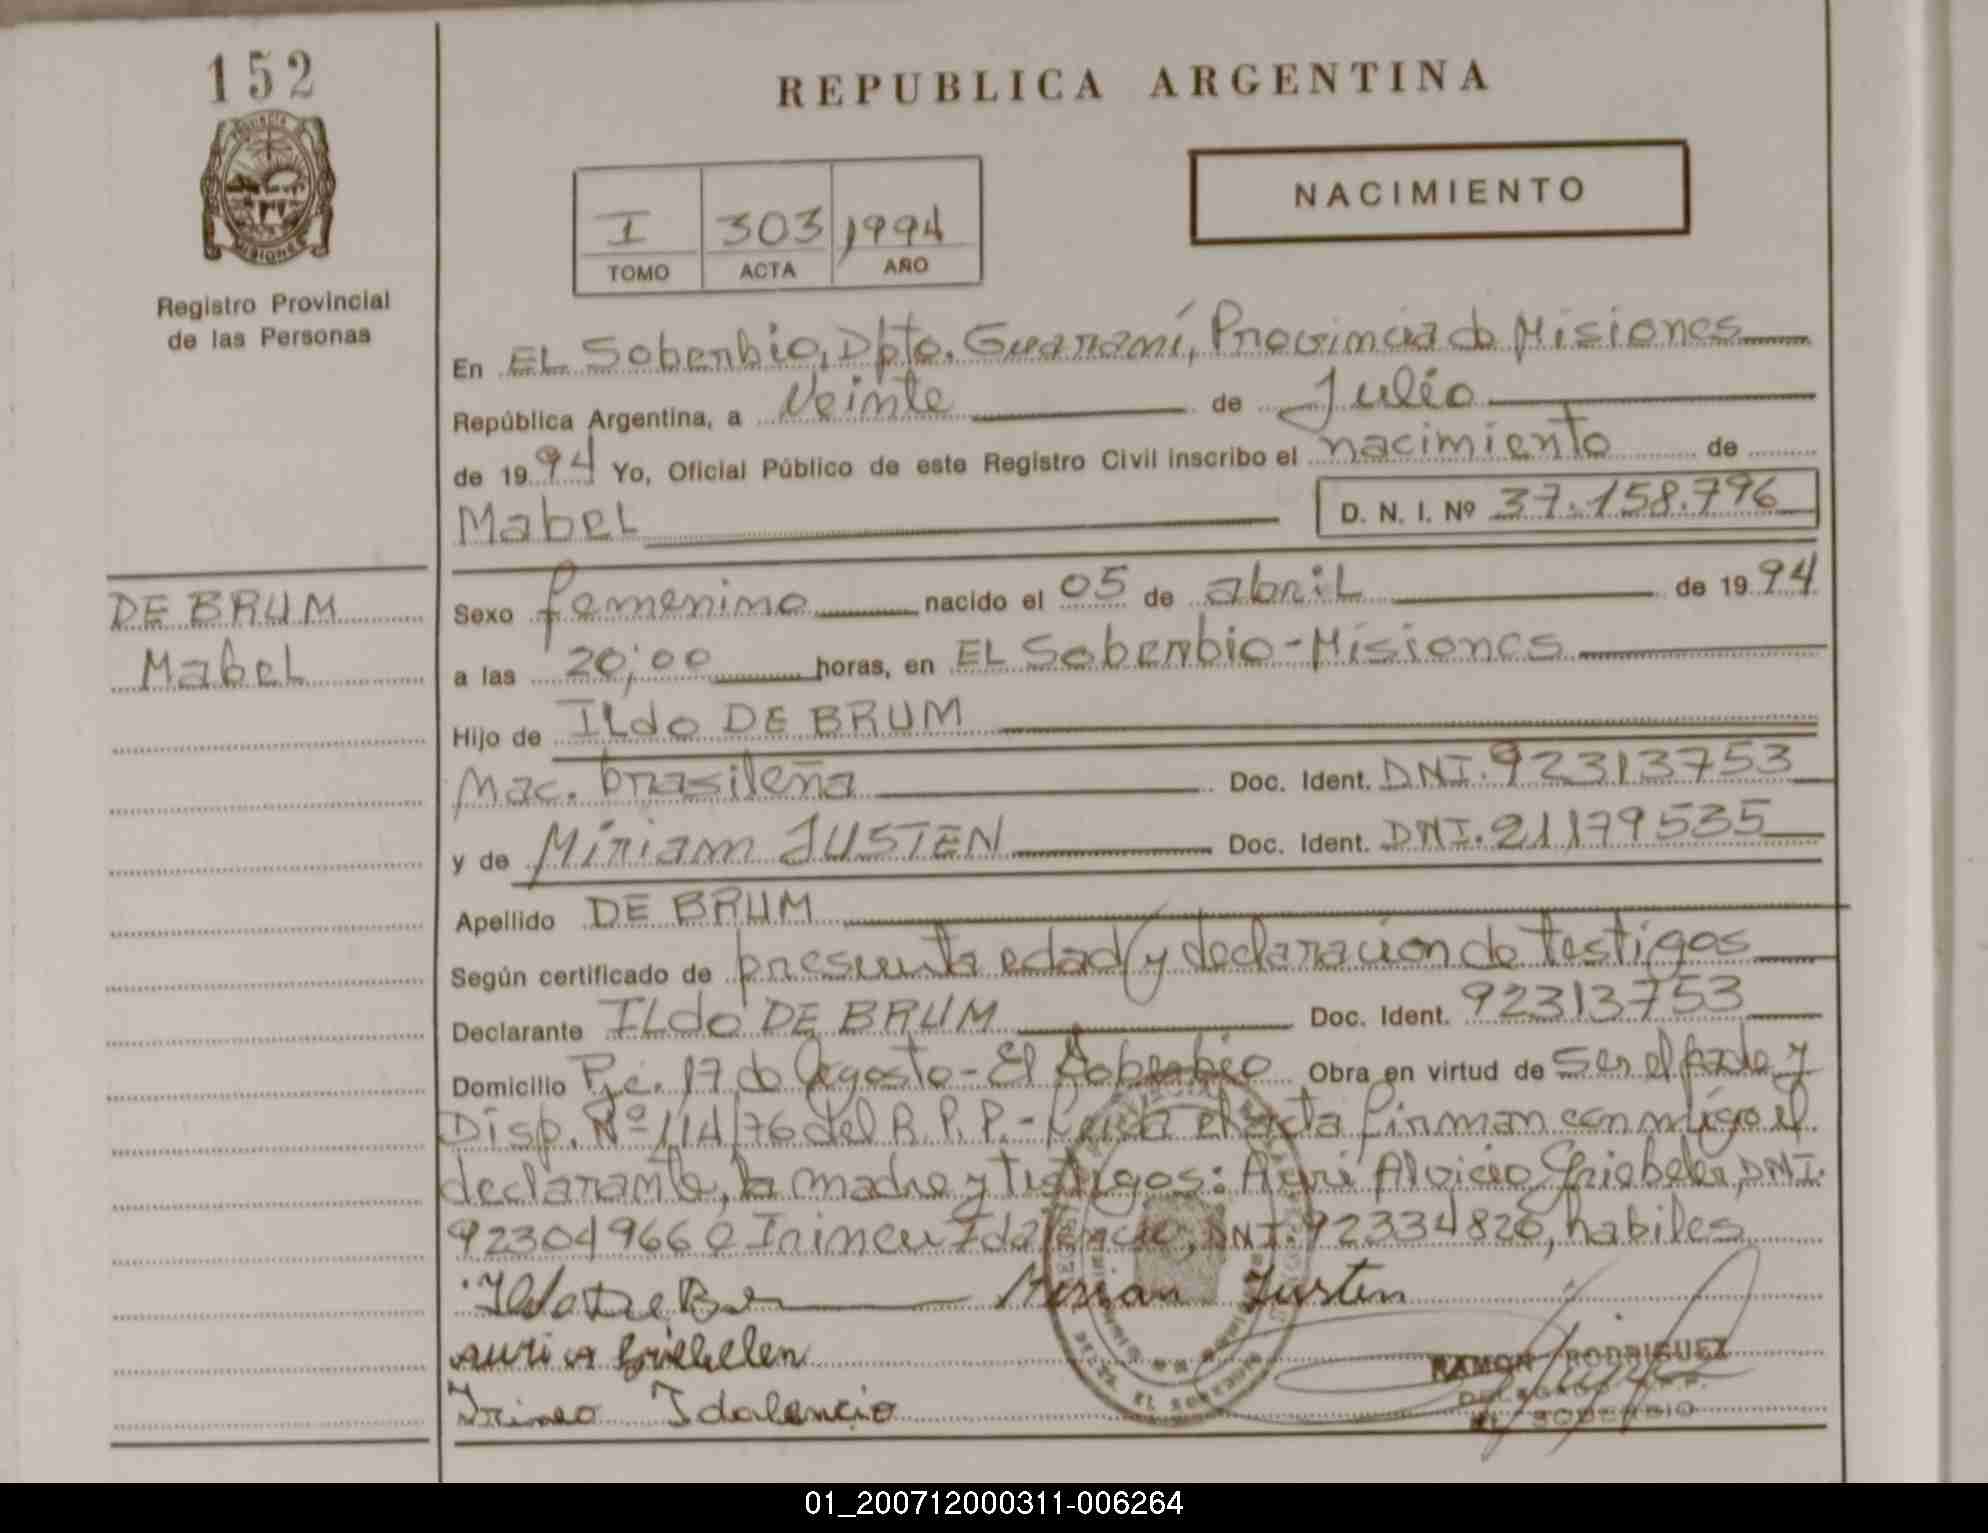 152
REPUBLICA ARGENTINA
NACIMIENTO
I 303 1994
TOMO ACTA AÑO
MISIONES
Registro Provincial
de las Personas
En EL Soberbio, Dpto. Guaraní, Provincia de Misiones
República Argentina, a Veinte de Julio
de 1994 Yo, Oficial Público de este Registro Civil inscribo el nacimiento de
Mabel D. N. I. Nº 37.158.796
DE BRUM
Mabel
Sexo femenino nacido el 05 de abril de 1994
a las 20;00 horas, en EL Soberbio-Misiones
Hijo de Ildo DE BRUM
Nac. brasileña Doc. Ident. DNI. 92313753
y de Míriam JUSTEN Doc. Ident. DNI. 21179535
Apellido DE BRUM
Según certificado de presunta edad y declaración de testigos
Declarante Ildo DE BRUM Doc. Ident. 92313753
Domicilio Pje. 17 de Agosto-El Soberbio Obra en virtud de ser el padre y
Disp. Nº 114/76 del R.P.P.- el acta firman conmigo el
declarante, la madre y testigos: Auri Alvicio Griebeler, DNI.
92304966 e Irineu Idalencio, DNI. 92334820, habiles
Ildo De Brum Mirian Justen
Auri A Griebelen
Irineo Idalencio
RAMON RODRIGUEZ
DELEGADO R.P.P.
EL SOBERBIO
01_200712000311-006264